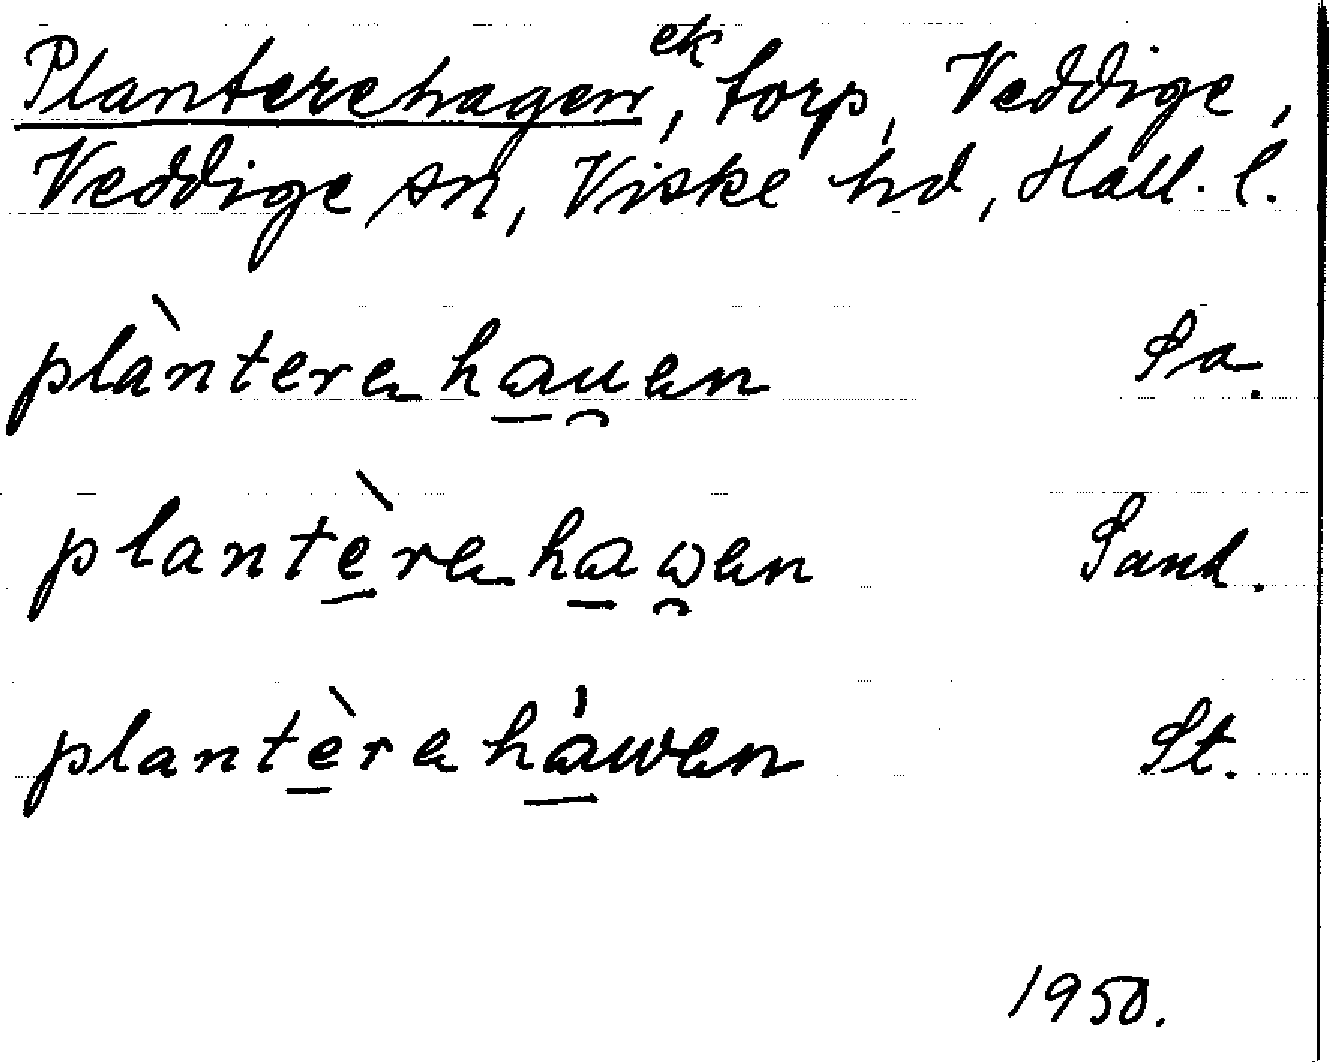 Planterehagen ek, torp, Veddige,
Veddige sn, Viske hd, Hall. l.
plànterehau̯en Sa.
plantèrehaw̯en Sand.
plantèreháwen St.
1950.